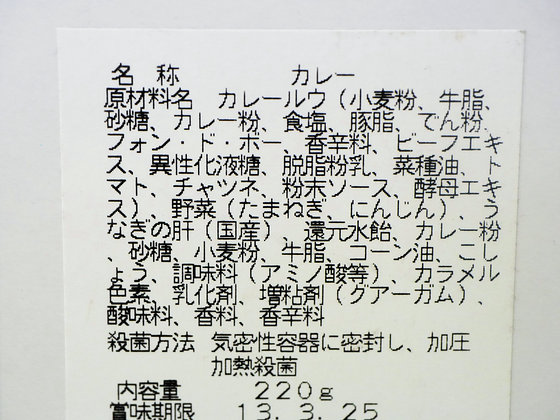 名　称　　　　　　カレー
原材料名　カレールウ（小麦粉、牛脂、
砂糖、カレー粉、食塩、豚脂、でん粉、
フォン・ド・ボー、香辛料、ビーフエキ
ス、異性化液糖、脱脂粉乳、菜種油、ト
マト、チャツネ、粉末ソース、酵母エキ
ス）、野菜（たまねぎ、にんじん）、う
なぎの肝（国産）、還元水飴、カレー粉
、砂糖、小麦粉、牛脂、コーン油、こし
ょう、調味料（アミノ酸等）、カラメル
色素、乳化剤、増粘剤（グアーガム）、
酸味料、香料、香辛料
殺菌方法　気密性容器に密封し、加圧
加熱殺菌
内容量　　　２２０ｇ
賞味期限　　１３．３．２５